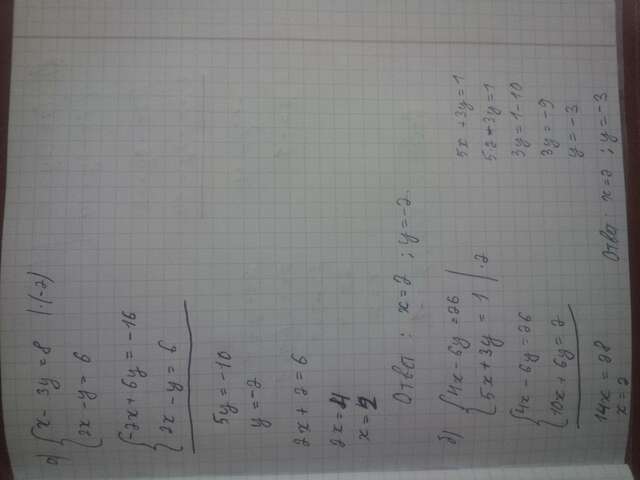 а) { x - 3y = 8 | ·(-2)
{ 2x - y = 6
{ -2x + 6y = -16
{ 2x - y = 6
5y = -10
y = -2
2x + 2 = 6
2x = 4
x = 2
Ответ: x = 2 ; y = -2.
б) { 4x - 6y = 26
{ 5x + 3y = 1 | · 2
{ 4x - 6y = 26
{ 10x + 6y = 2
14x = 28
x = 2
5x + 3y = 1
5·2 + 3y = 1
3y = 1 - 10
3y = -9
y = -3
Ответ: x = 2 ; y = -3